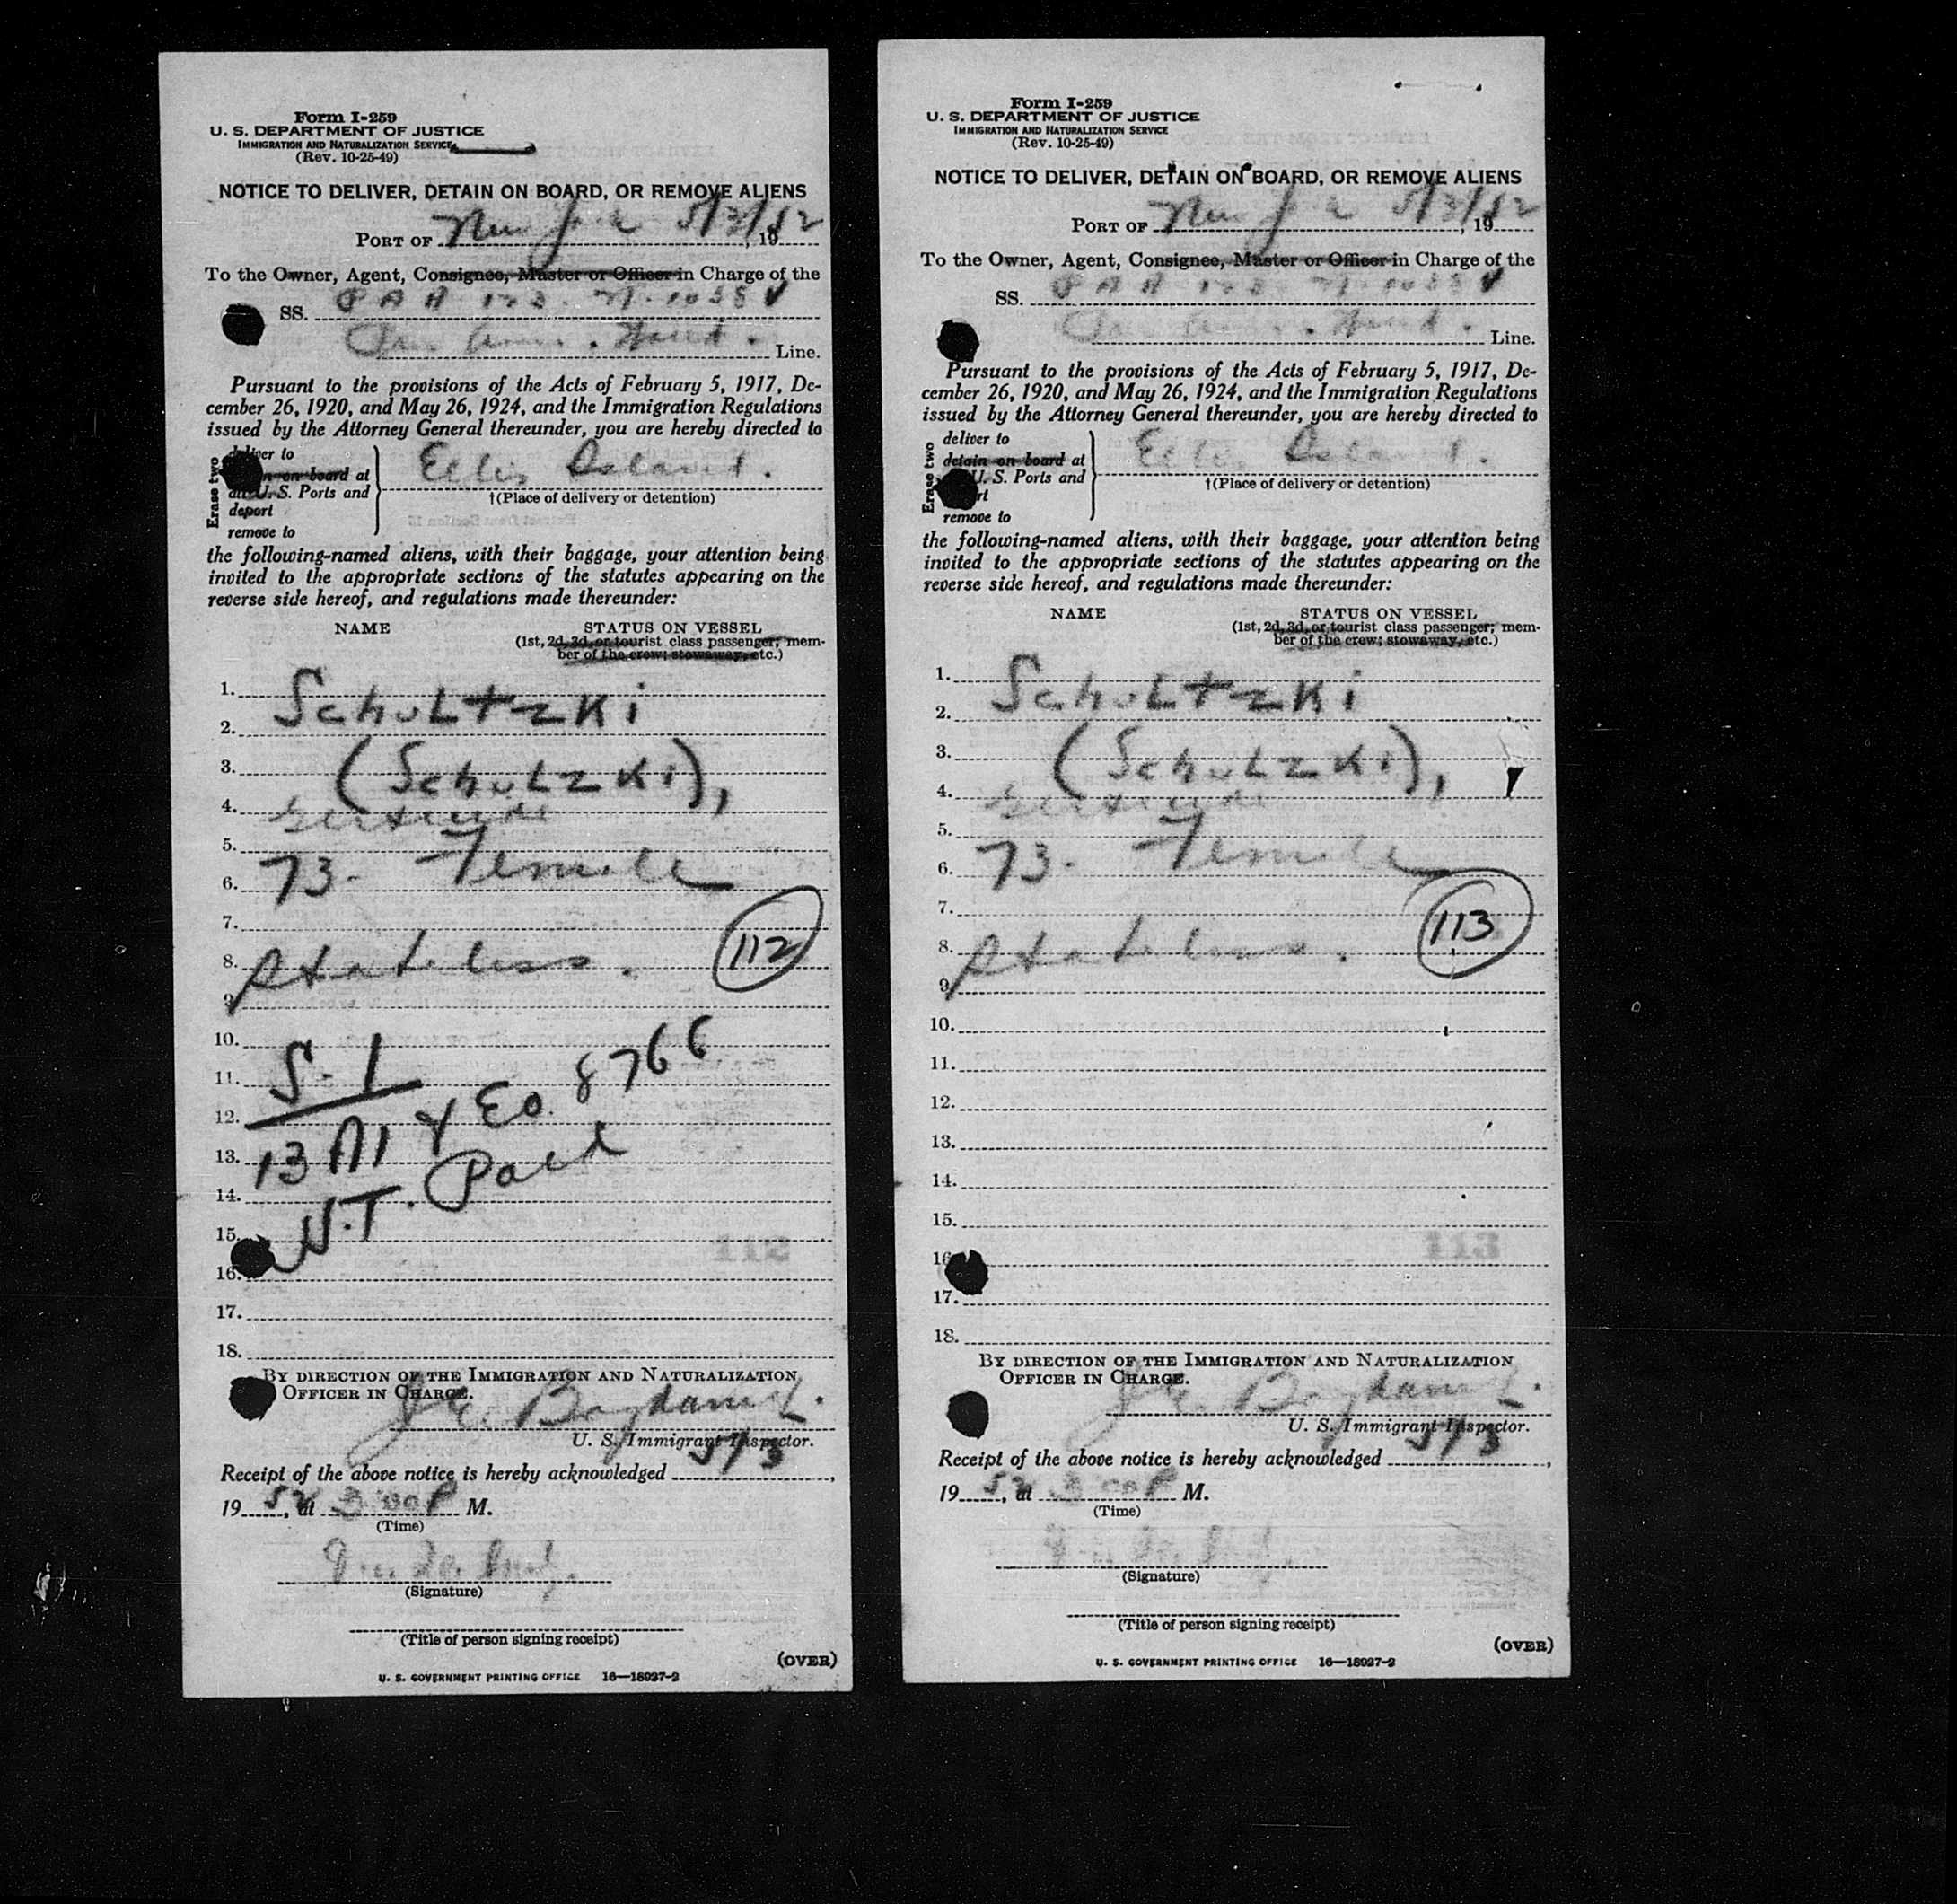 Form I-259
U. S. DEPARTMENT OF JUSTICE
IMMIGRATION AND NATURALIZATION SERVICE
(Rev. 10-25-49)
NOTICE TO DELIVER, DETAIN ON BOARD, OR REMOVE ALIENS
PORT OF New 5/3/52, 19
To the Owner, Agent, Consignee, Master or Officer in Charge of the
SS. P A A
Pan Amer. Line.
Pursuant to the provisions of the Acts of February 5, 1917, De-
cember 26, 1920, and May 26, 1924, and the Immigration Regulations
issued by the Attorney General thereunder, you are hereby directed to
Erase two
deliver to
on board at
U. S. Ports and
deport
remove to
Ellis Island.
†(Place of delivery or detention)
the following-named aliens, with their baggage, your attention being
invited to the appropriate sections of the statutes appearing on the
reverse side hereof, and regulations made thereunder:
NAME STATUS ON VESSEL
(1st, 2d, 3d, or tourist class passenger; mem-
ber of the crew; stowaway, etc.)
1.
SchuLtzKi
2.
3.
(SchuLzKi),
4.
Gertrude
5.
73. Female
6.
7.
112
8. Stateless.
9.
10.
S-1
11.
8766
12.
13 A1 & EO.
13.
Paid
14.
N.T.
15.
112
16.
17.
18.
BY DIRECTION OF THE IMMIGRATION AND NATURALIZATION
OFFICER IN CHARGE.
U. S. Immigrant Inspector.
Receipt of the above notice is hereby acknowledged 5/3,
19 52, at 3:00 P M.
(Time)
(Signature)
(Title of person signing receipt)
(OVER)
U. S. GOVERNMENT PRINTING OFFICE 16—18927-2
Form I-259
U. S. DEPARTMENT OF JUSTICE
IMMIGRATION AND NATURALIZATION SERVICE
(Rev. 10-25-49)
NOTICE TO DELIVER, DETAIN ON BOARD, OR REMOVE ALIENS
PORT OF New 5/3/52, 19
To the Owner, Agent, Consignee, Master or Officer in Charge of the
SS. P A A
Pan Amer. Line.
Pursuant to the provisions of the Acts of February 5, 1917, De-
cember 26, 1920, and May 26, 1924, and the Immigration Regulations
issued by the Attorney General thereunder, you are hereby directed to
Erase two
deliver to
detain on board at
U. S. Ports and
remove to
Ellis Island.
†(Place of delivery or detention)
the following-named aliens, with their baggage, your attention being
invited to the appropriate sections of the statutes appearing on the
reverse side hereof, and regulations made thereunder:
NAME STATUS ON VESSEL
(1st, 2d, 3d, or tourist class passenger; mem-
ber of the crew; stowaway, etc.)
1.
SchuLtzKi
2.
3.
(SchuLzKi),
4.
Gertrude
5.
73. Female
6.
7.
113
8. Stateless.
9.
10.
11.
12.
13.
14.
15.
113
16
17.
18.
BY DIRECTION OF THE IMMIGRATION AND NATURALIZATION
OFFICER IN CHARGE.
U. S. Immigrant Inspector.
Receipt of the above notice is hereby acknowledged 5/3,
19 52, at 3:00 P M.
(Time)
(Signature)
(Title of person signing receipt)
(OVER)
U. S. GOVERNMENT PRINTING OFFICE 16—18927-2